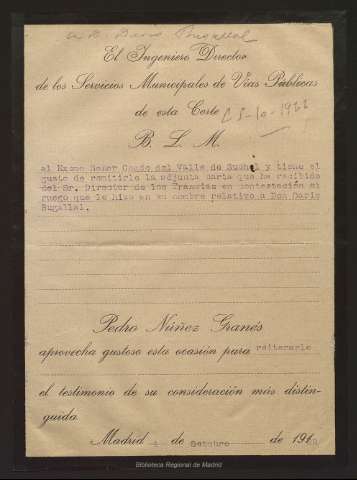 a D. Dario Bugallal
El Ingeniero Director
de los Servicios Municipales de Vías Públicas
de esta Corte
B. L. M.
al Excmo Señor Conde del Valle de Suchil y tiene el
gusto de remitirle la adjunta carta que ha recibido
del Sr. Director de los Tranvías en contestación al
ruego que le hizo en su nombre relativo a Don Dario
Bugallal.
Pedro Núñez Granés
aprovecha gustoso esta ocasión para reiterarle
el testimonio de su consideración más distin-
guida
Madrid de Octubre de 191
Biblioteca Regional de Madrid